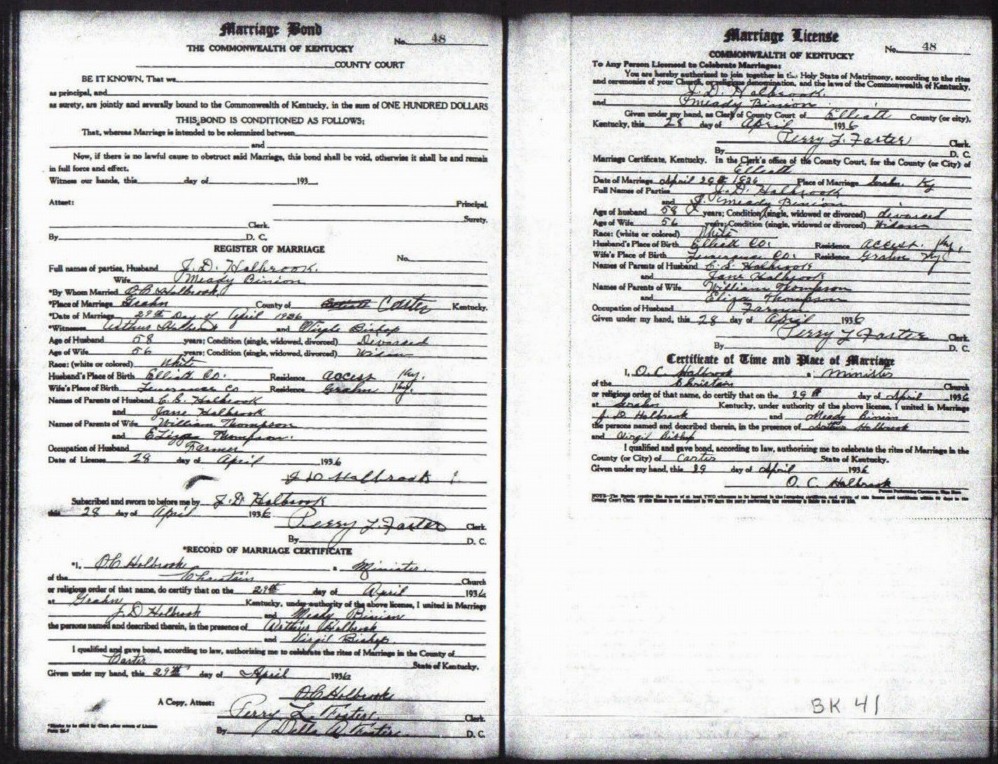 Marriage Bond
No. 48
THE COMMONWEALTH OF KENTUCKY
COUNTY COURT
BE IT KNOWN, That we
as principal, and
as surety, are jointly and severally bound to the Commonwealth of Kentucky, in the sum of ONE HUNDRED DOLLARS
THIS BOND IS CONDITIONED AS FOLLOWS:
That, whereas Marriage is intended to be solemnized between
and
Now, if there is no lawful cause to obstruct said Marriage, this bond shall be void, otherwise it shall be and remain
in full force and effect.
Witness our hands, this day of 193
Attest: Principal.
Surety.
Clerk.
By D. C.
REGISTER OF MARRIAGE
No.
Full names of parties, Husband J. D. Holbrook.
Wife Meady Binion
*By Whom Married O. C. Holbrook
*Place of Marriage Grahn County of Carter Kentucky.
*Date of Marriage 29th Day of April 1936
*Witnesses and Bishop
Age of Husband 58 years; Condition (single, widowed, divorced) Divorced
Age of Wife 56 years; Condition (single, widowed, divorced) Widow
Race: (white or colored) White
Husband's Place of Birth Elliott Co. Residence Access Ky.
Wife's Place of Birth Co Residence Grahn Ky.
Names of Parents of Husband C. E. Holbrook
and Jane Holbrook
Names of Parents of Wife William Thompson
and Eliza Thompson.
Occupation of Husband Farmer
Date of License 28 day of April 1936
J D Holbrook
Subscribed and sworn to before me by J. D. Holbrook
this 28 day of April 1936
Perry L. Foster Clerk.
By D. C.
*RECORD OF MARRIAGE CERTIFICATE
*I, O C Holbrook a Minister
of the Christain Church
or religious order of that name, do certify that on the 29th day of April 1936
at Grahn Kentucky, under authority of the above license, I united in Marriage
J. D Holbrook and Meady Binion
the persons named and described therein, in the presence of Arthur Holbrook
and Virgil Bishop
I qualified and gave bond, according to law, authorising me to celebrate the rites of Marriage in the County of
Carter State of Kentucky.
Given under my hand, this 29th day of April 1936
O C Holbrook
A Copy, Attest: Perry L. Foster Clerk.
By Della A. Foster D. C.
Marriage License
No. 48
COMMONWEALTH OF KENTUCKY
To Any Person Licensed to Celebrate Marriages:
You are hereby authorised to join together in the Holy State of Matrimony, according to the rites
and ceremonies of your Church, or religious denomination, and the laws of the Commonwealth of Kentucky,
J. D. Holbrook.
and Meady Binion.
Given under my hand, as Clerk of County Court of Elliott County (or city),
Kentucky, this 28 day of April 1936
Perry L. Foster Clerk.
By D. C.
Marriage Certificate, Kentucky. In the Clerk's office of the County Court, for the County (or City) of
Elliott
Date of Marriage April 29th 1936 Place of Marriage Grahn, Ky
Full Names of Parties J. D. Holbrook
and Meady Binion
Age of husband 58 years; Condition (single, widowed or divorced) divorced
Age of Wife 56 years; Condition (single, widowed or divorced) Widow
Race: (white or colored) White
Husband's Place of Birth Elliott Co. Residence Access Ky.
Wife's Place of Birth Co. Residence Grahn Ky
Names of Parents of Husband C. E. Holbrook
and Jane Holbrook
Names of Parents of Wife William Thompson
and Eliza Thompson
Occupation of Husband Farmer
Given under my hand, this 28 day of April 1936
Perry L Foster Clerk.
By D. C.
Certificate of Time and Place of Marriage
I, O. C Holbrook a minister
of the Christian Church
or religious order of that name, do certify that on the 29th day of April 1936
at Grahn Kentucky, under authority of the above license, I united in Marriage
J. D Holbrook and Meady Binion
the persons named and described therein, in the presence of Arthur Holbrook
and Virgil Bishop
I qualified and gave bond, according to law, authorising me to celebrate the rites of Marriage in the
County (or City) of Carter State of Kentucky.
Given under my hand, this 29 day of April 1936
O. C. Holbrook
BK 41